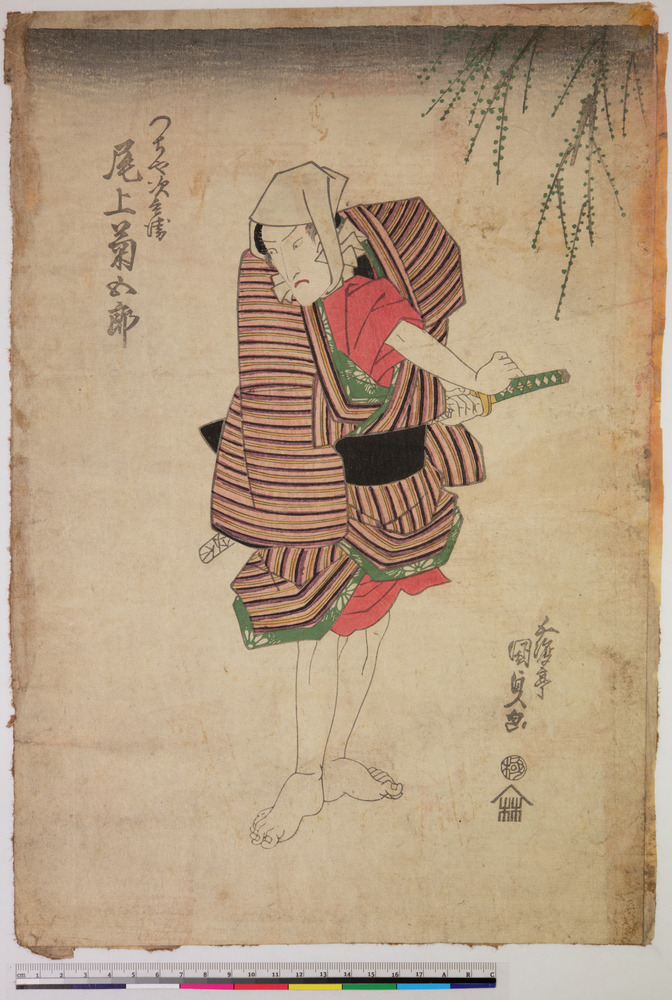 つちや次兵衛
尾上菊五郎
五渡亭
国貞画
極
林
cm 1 2 3 4 5 6 7 8 9 10 11 12 13 14 15 16 17 A R C